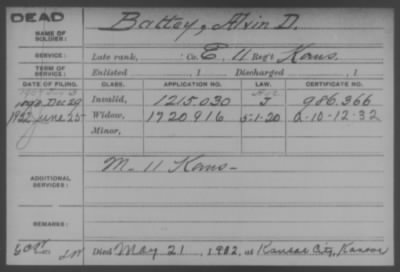 DEAD
NAME OF SOLDIER: Battey, Alvin D.
SERVICE: Late rank, Co. E, 11 Reg't Kans.
TERM OF SERVICE: Enlisted , 1 Discharged , 1
DATE OF FILING. CLASS. APPLICATION NO. LAW. CERTIFICATE NO.
Dec 29 Invalid, 1215.030 J 986.366
1922 June 25 Widow, 1920916 5-1-20 2-10-12-32
Minor,
ADDITIONAL SERVICES: M. 11 Kans-
REMARKS:
Died May 21, 1922, at Kansas City, Kansas